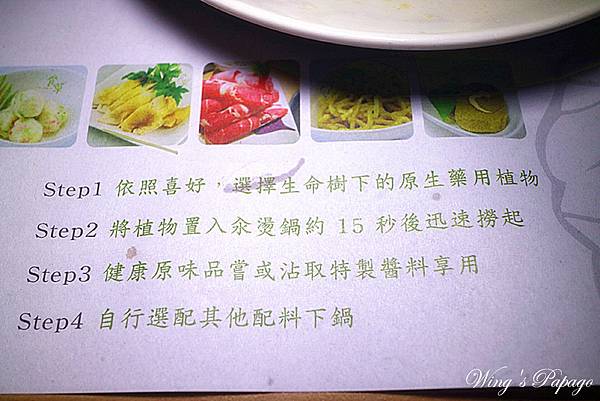 Step1 依照喜好，選擇生命樹下的原生藥用植物
Step2 將植物置入汆燙鍋約 15 秒後迅速撈起
Step3 健康原味品嘗或沾取特製醬料享用
Step4 自行選配其他配料下鍋
Wing's Papago